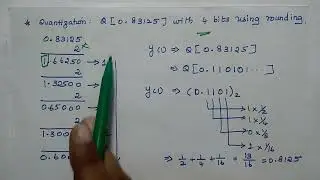 * Quantization: Q[0.83125] with 4 bits using rounding.
0.83125
2 ×
1.66250 →
2
1.32500 →
2
0.65000 →
2
1.30000
2
0.6
y(1) ⇒ Q[0.83125]
⇒ Q[0.110101...]
y(1) ⇒ (0.1101)₂
1 × 1/2
1 × 1/4
0 × 1/8
1 × 1/16
⇒ 1/2 + 1/4 + 1/16 = 13/16 = 0.8125